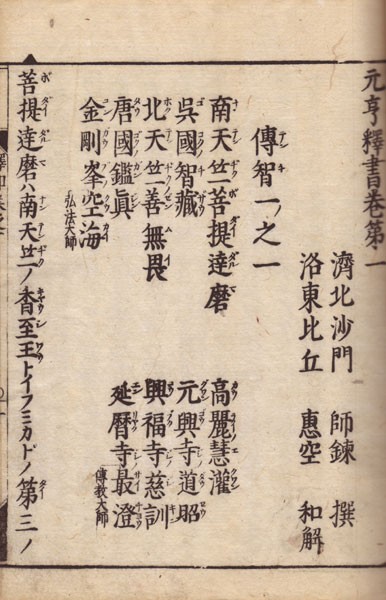 元亨釋書巻第一
濟北沙門 師錬 撰
洛東比丘 惠空 和解
傳智一之一
南天竺菩提達磨 高麗慧灌
吳國智藏 元興寺道昭
北天竺善無畏 興福寺慈訓
唐國鑑眞 延暦寺最澄 傳教大師
金剛峯空海 弘法大師
菩提達磨ハ南天竺ノ香至王トイフミカドノ第三ノ